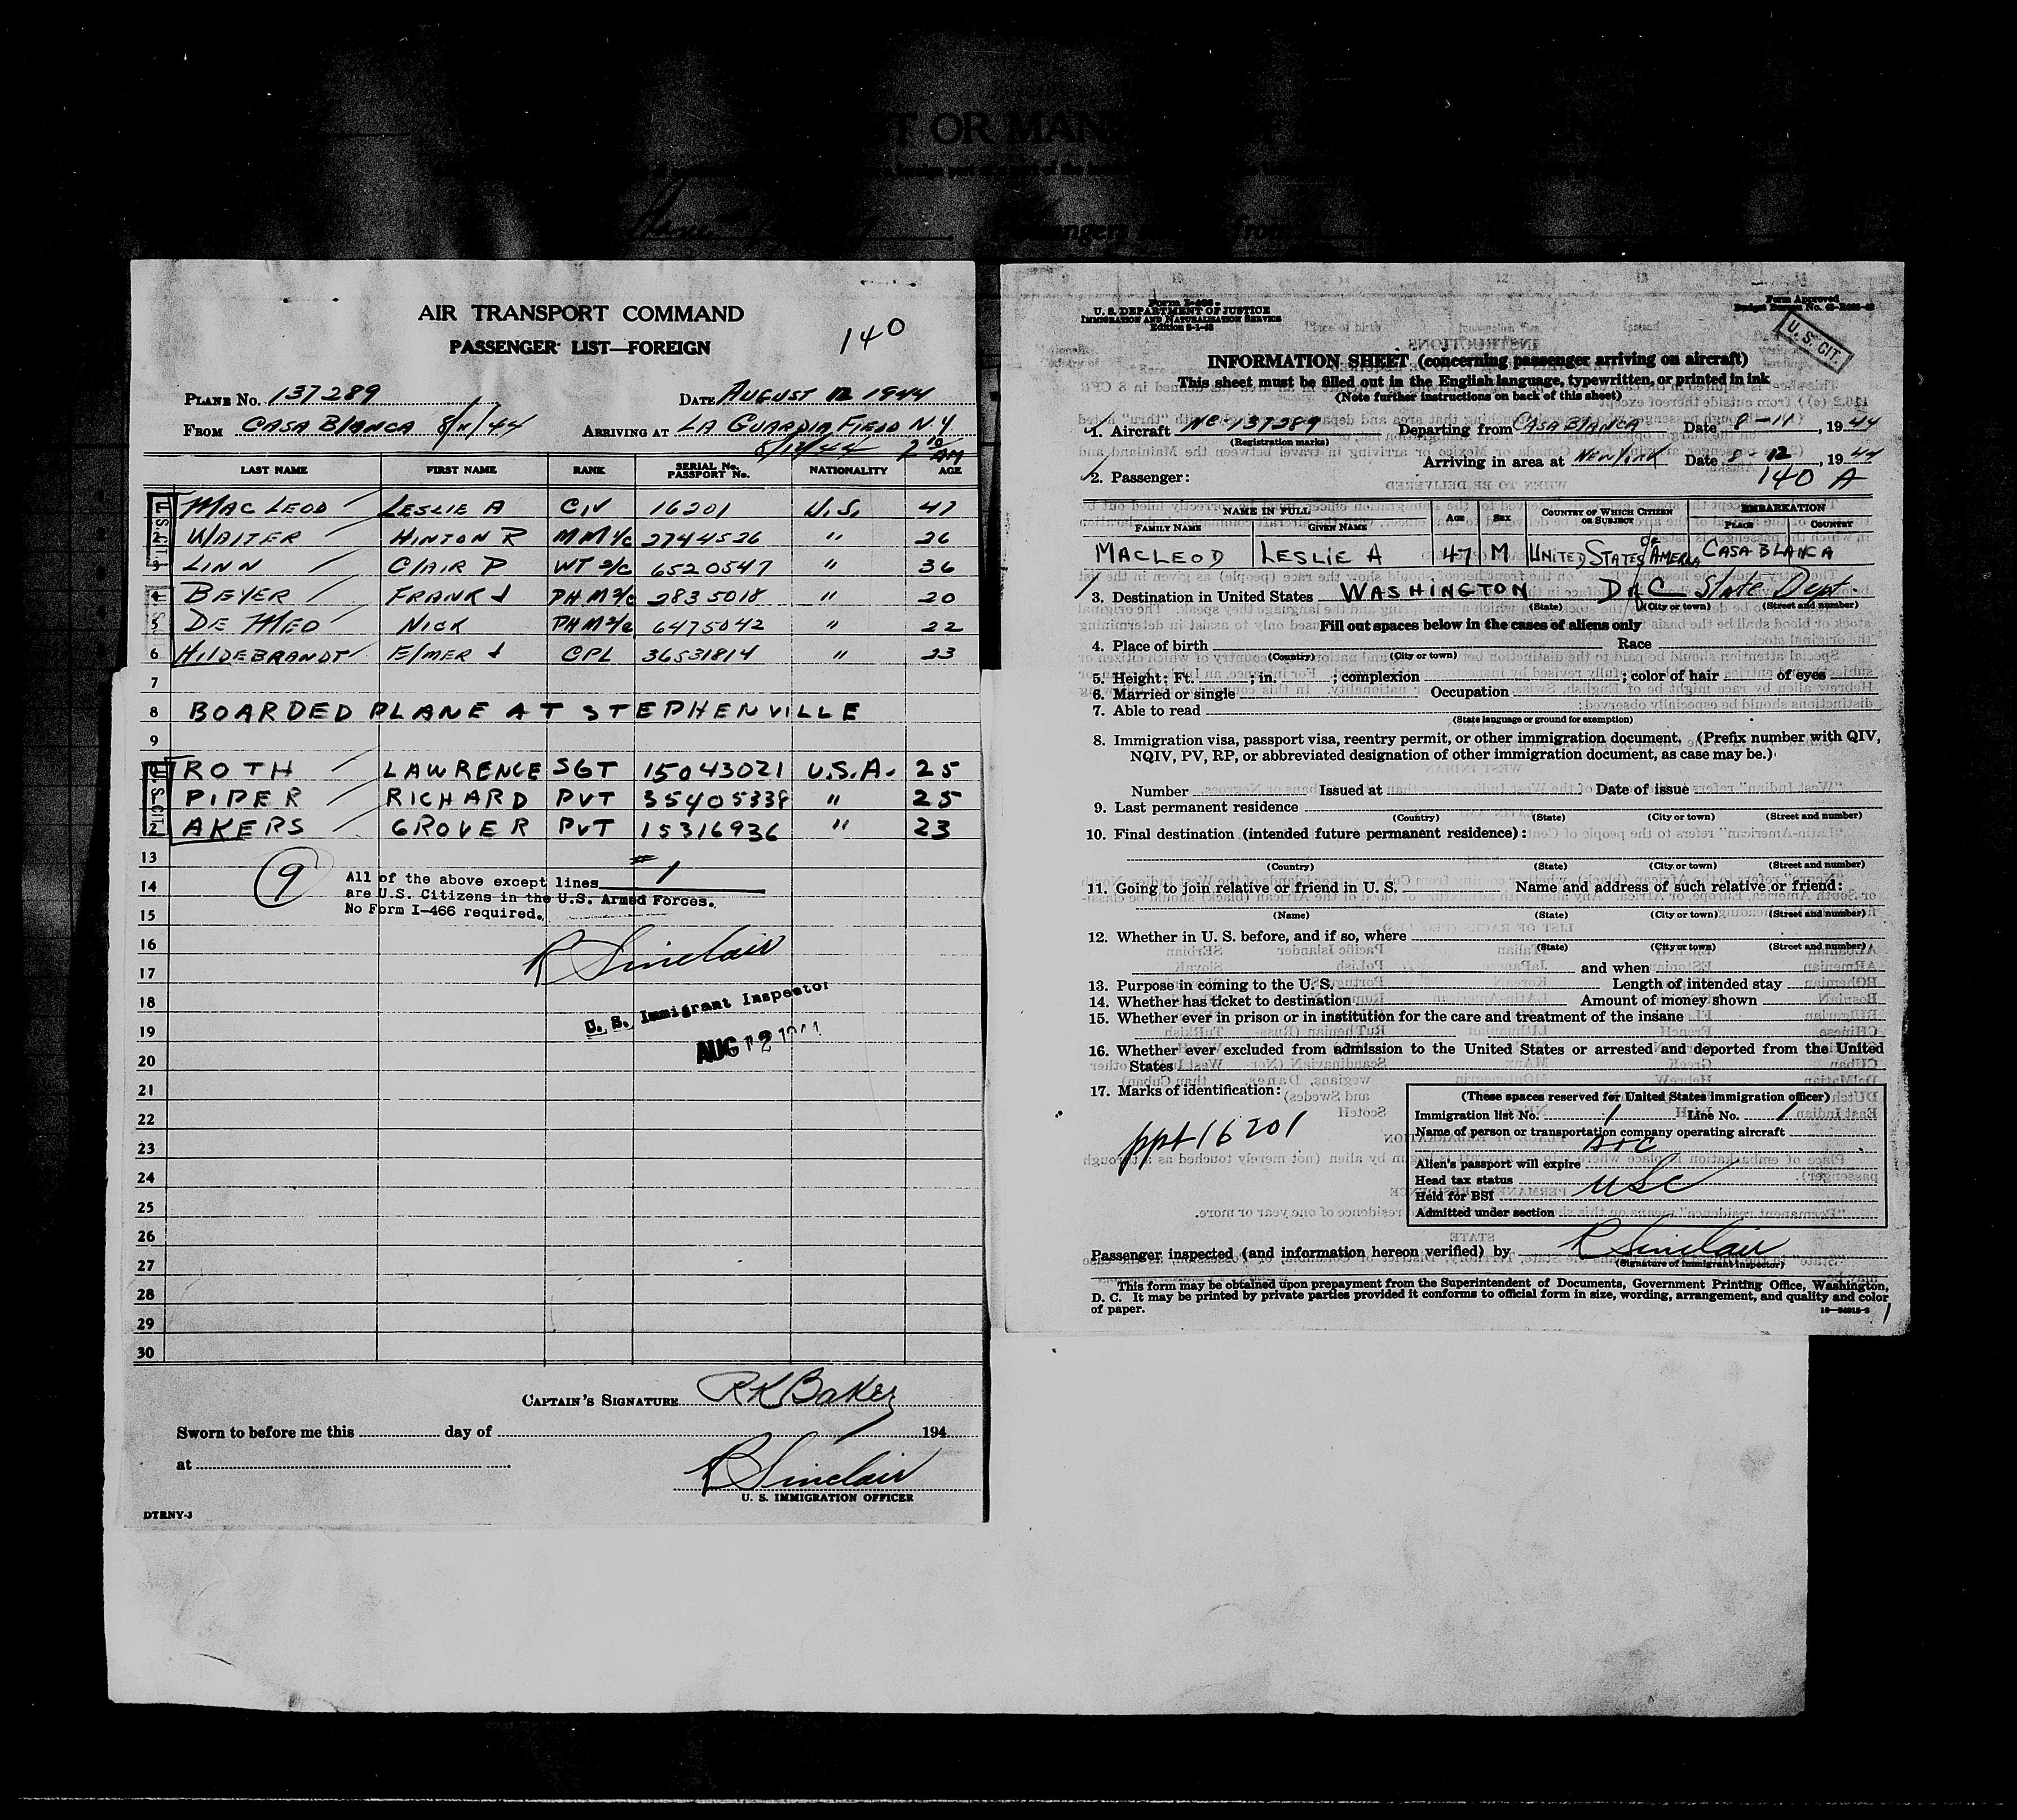 AIR TRANSPORT COMMAND
PASSENGER LIST—FOREIGN
140
PLANE No. 137289 DATE AUGUST 12 1944
FROM CASA BLANCA 8/11/44 ARRIVING AT LA GUARDIA FIELD N.Y
8/12/44 AM
LAST NAME FIRST NAME RANK SERIAL No. PASSPORT No. NATIONALITY AGE
U.S. CIT.
MAC LEOD LESLIE A CIV 16201 U.S. 47
WAITER HINTON R MM 1/c 2744526 " 26
3 LINN CLAIR P WT 2/c 6520547 " 36
4 BEYER FRANK J PHM 2/c 2835018 " 20
5 DE MEO NICK PHM 2/c 6475042 " 22
6 HILDEBRANDT ELMER J CPL 36531814 " 23
7
8 BOARDED PLANE AT STEPHENVILLE
9
U.S. CIT.
ROTH LAWRENCE SGT 15043021 U.S.A. 25
PIPER RICHARD PVT 35405338 " 25
AKERS GROVER PVT 15316936 " 23
13
14 9 All of the above except lines # 1
are U.S. Citizens in the U.S. Armed Forces.
15 No Form I-466 required.
16 R Sinclair
17
18 U. S. Immigrant Inspector
19 AUG 12 1944
20
21
22
23
24
25
26
27
28
29
30
CAPTAIN'S SIGNATURE RK Baker
Sworn to before me this day of 194
at R Sinclair
U. S. IMMIGRATION OFFICER
DTRNY-3
Form I-466
U. S. DEPARTMENT OF JUSTICE
IMMIGRATION AND NATURALIZATION SERVICE
Form Approved
U. S. CIT.
INFORMATION SHEET (concerning passenger arriving on aircraft)
This sheet must be filled out in the English language, typewritten, or printed in ink
(Note further instructions on back of this sheet)
1. Aircraft NC-137289 Departing from CASABLANCA Date 8-11, 1944
(Registration marks)
Arriving in area at NEW YORK Date 8 12, 1944
2. Passenger: 140 A
NAME IN FULL AGE SEX COUNTRY OF WHICH CITIZEN OR SUBJECT EMBARKATION
FAMILY NAME GIVEN NAME PLACE COUNTRY
MACLEOD LESLIE A 47 M UNITED STATES OF AMERICA CASABLANCA
3. Destination in United States WASHINGTON D C State Dept.
(State) (City or town) (Street and number)
Fill out spaces below in the cases of aliens only
4. Place of birth Race
(Country) (City or town)
5. Height: Ft. ; in. ; complexion ; color of hair of eyes
6. Married or single Occupation
7. Able to read
(State language or ground for exemption)
8. Immigration visa, passport visa, reentry permit, or other immigration document. (Prefix number with QIV,
NQIV, PV, RP, or abbreviated designation of other immigration document, as case may be.)
Number Issued at Date of issue
9. Last permanent residence
(Country) (State) (City or town) (Street and number)
10. Final destination (intended future permanent residence):
(Country) (State) (City or town) (Street and number)
11. Going to join relative or friend in U. S. Name and address of such relative or friend:
(Name) (State) (City or town) (Street and number)
12. Whether in U. S. before, and if so, where
(State) (City or town) (Street and number)
and when
13. Purpose in coming to the U. S. Length of intended stay
14. Whether has ticket to destination Amount of money shown
15. Whether ever in prison or in institution for the care and treatment of the insane
16. Whether ever excluded from admission to the United States or arrested and deported from the United
States
17. Marks of identification:
ppt 16201
(These spaces reserved for United States immigration officer)
Immigration list No. 1 Line No. 1
Name of person or transportation company operating aircraft
ATC
Alien's passport will expire
Head tax status USC
Held for BSI
Admitted under section
Passenger inspected (and information hereon verified) by R Sinclair
(Signature of Immigrant Inspector)
This form may be obtained upon prepayment from the Superintendent of Documents, Government Printing Office, Washington,
D. C. It may be printed by private parties provided it conforms to official form in size, wording, arrangement, and quality and color
of paper.
1